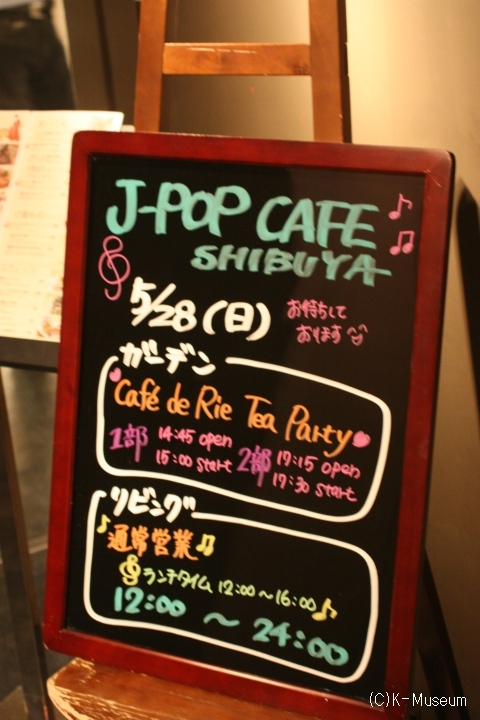 J-POP CAFE
SHIBUYA
5/28(日)
お待ちして
おります
ガーデン
Café de Rie Tea Party
1部 14:45 open
15:00 start
2部 17:15 open
17:30 start
リビング
通常営業
ランチタイム 12:00〜16:00
12:00 〜 24:00
(C)K-Museum